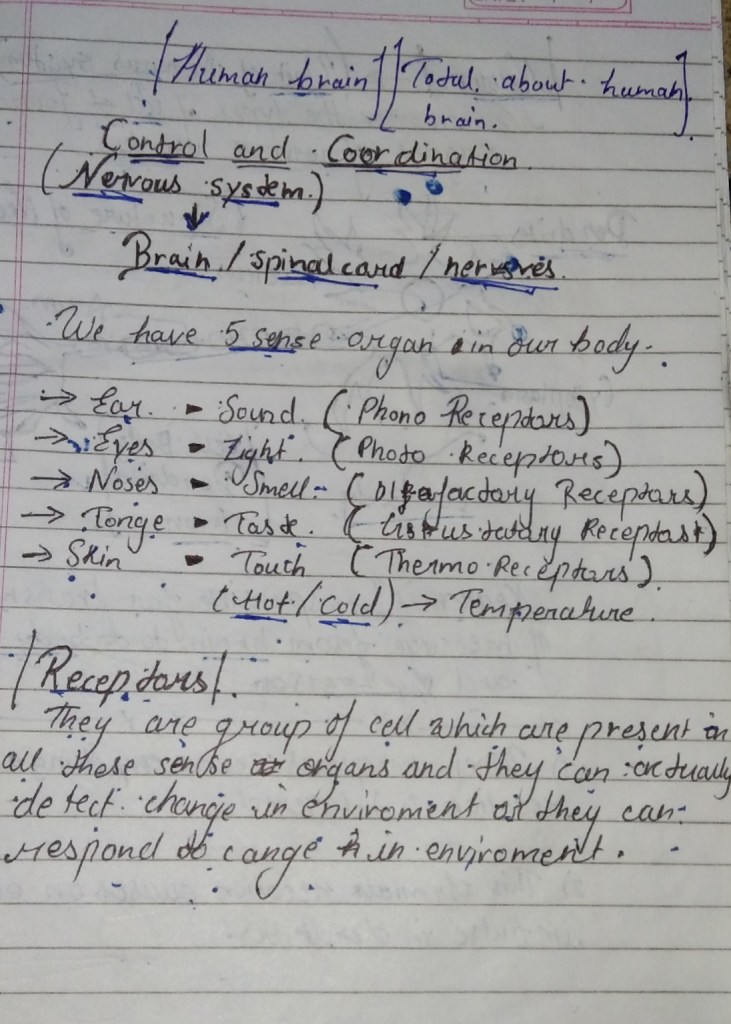 Human brain Total about human
brain.
Control and Coordination
(Nervous system.)
↓
Brain / spinalcard / nerves.
We have 5 sense organ in our body.
→ Ear. - Sound. (Phono Receptors)
→ Eyes - Light. (Photo Receptors)
→ Noses - Smell - (Receptars)
→ Tonge - Taste. (
→ Skin - Touch (Thermo Receptars).
(Hot/Cold) → Temperature.
Receptars.
They are group of cell which are present in
all these sense organs and they can actually
detect change in enviroment or they can
respond to cange in enviroment.